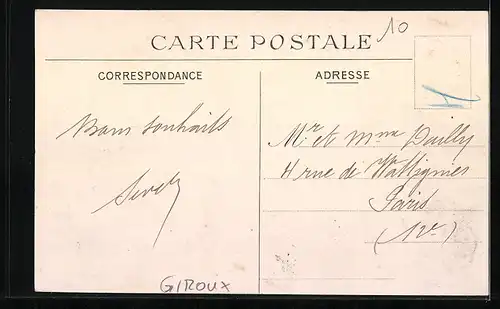 10
CARTE POSTALE
CORRESPONDANCE
ADRESSE
Bons souhaits
Mr et Mme Dailly
4 rue de Wattignies
Paris
(12e)
GIROUX